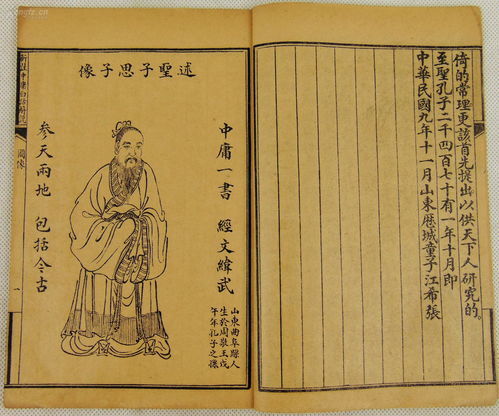 倚的常理更該首先提出以供天下人研究的。
至聖孔子二千四百七十有一年十月即
中華民國九年十一月山東歷城童子江希張
述聖子思子像
中庸一書 經文緯武
山東曲阜縣人
生於周敬王戊
午年孔子之孫
參天兩地 包括今古
圖像
一